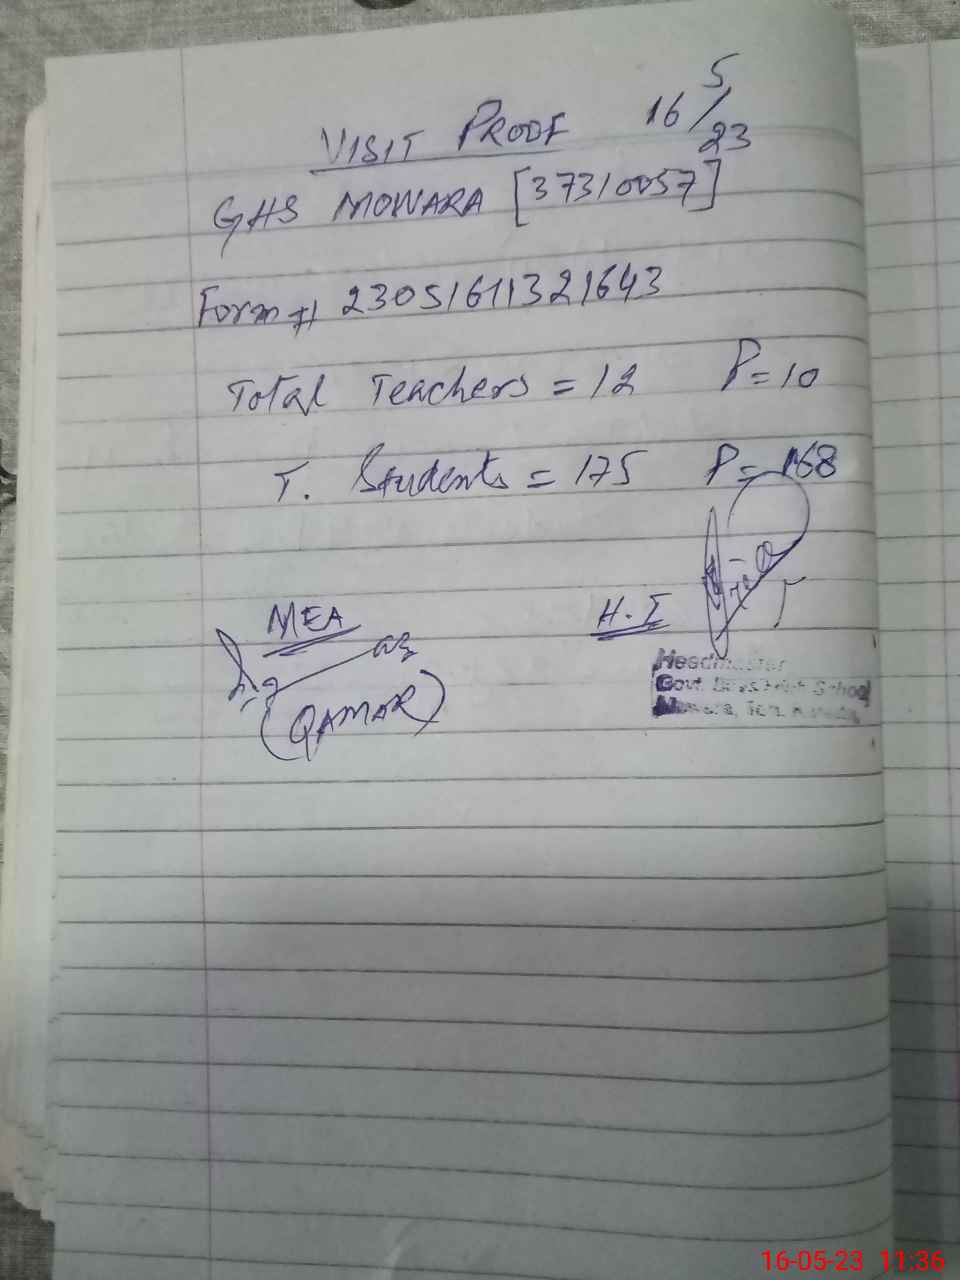 VISIT PROOF 16/5/23
GHS MOWARA [37310057]
Form # 23051611321643
Total Teachers = 12 P= 10
T. Students = 175 P= 168
MEA
H.I
(QAMAR)
Headmaster
Govt. Boys High School
Mowara, Teh.
16-05-23 11:36